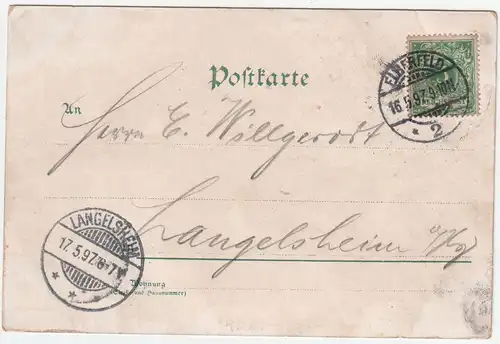 Postkarte
ELBERFELD
16.5.97.9-10V.
* 2
An
Herrn E. Willgerodt
Langelsheim a/Harz
LANGELSHEIM
17.5.97.6-7V
* *
Wohnung
(Straße und Hausnummer)